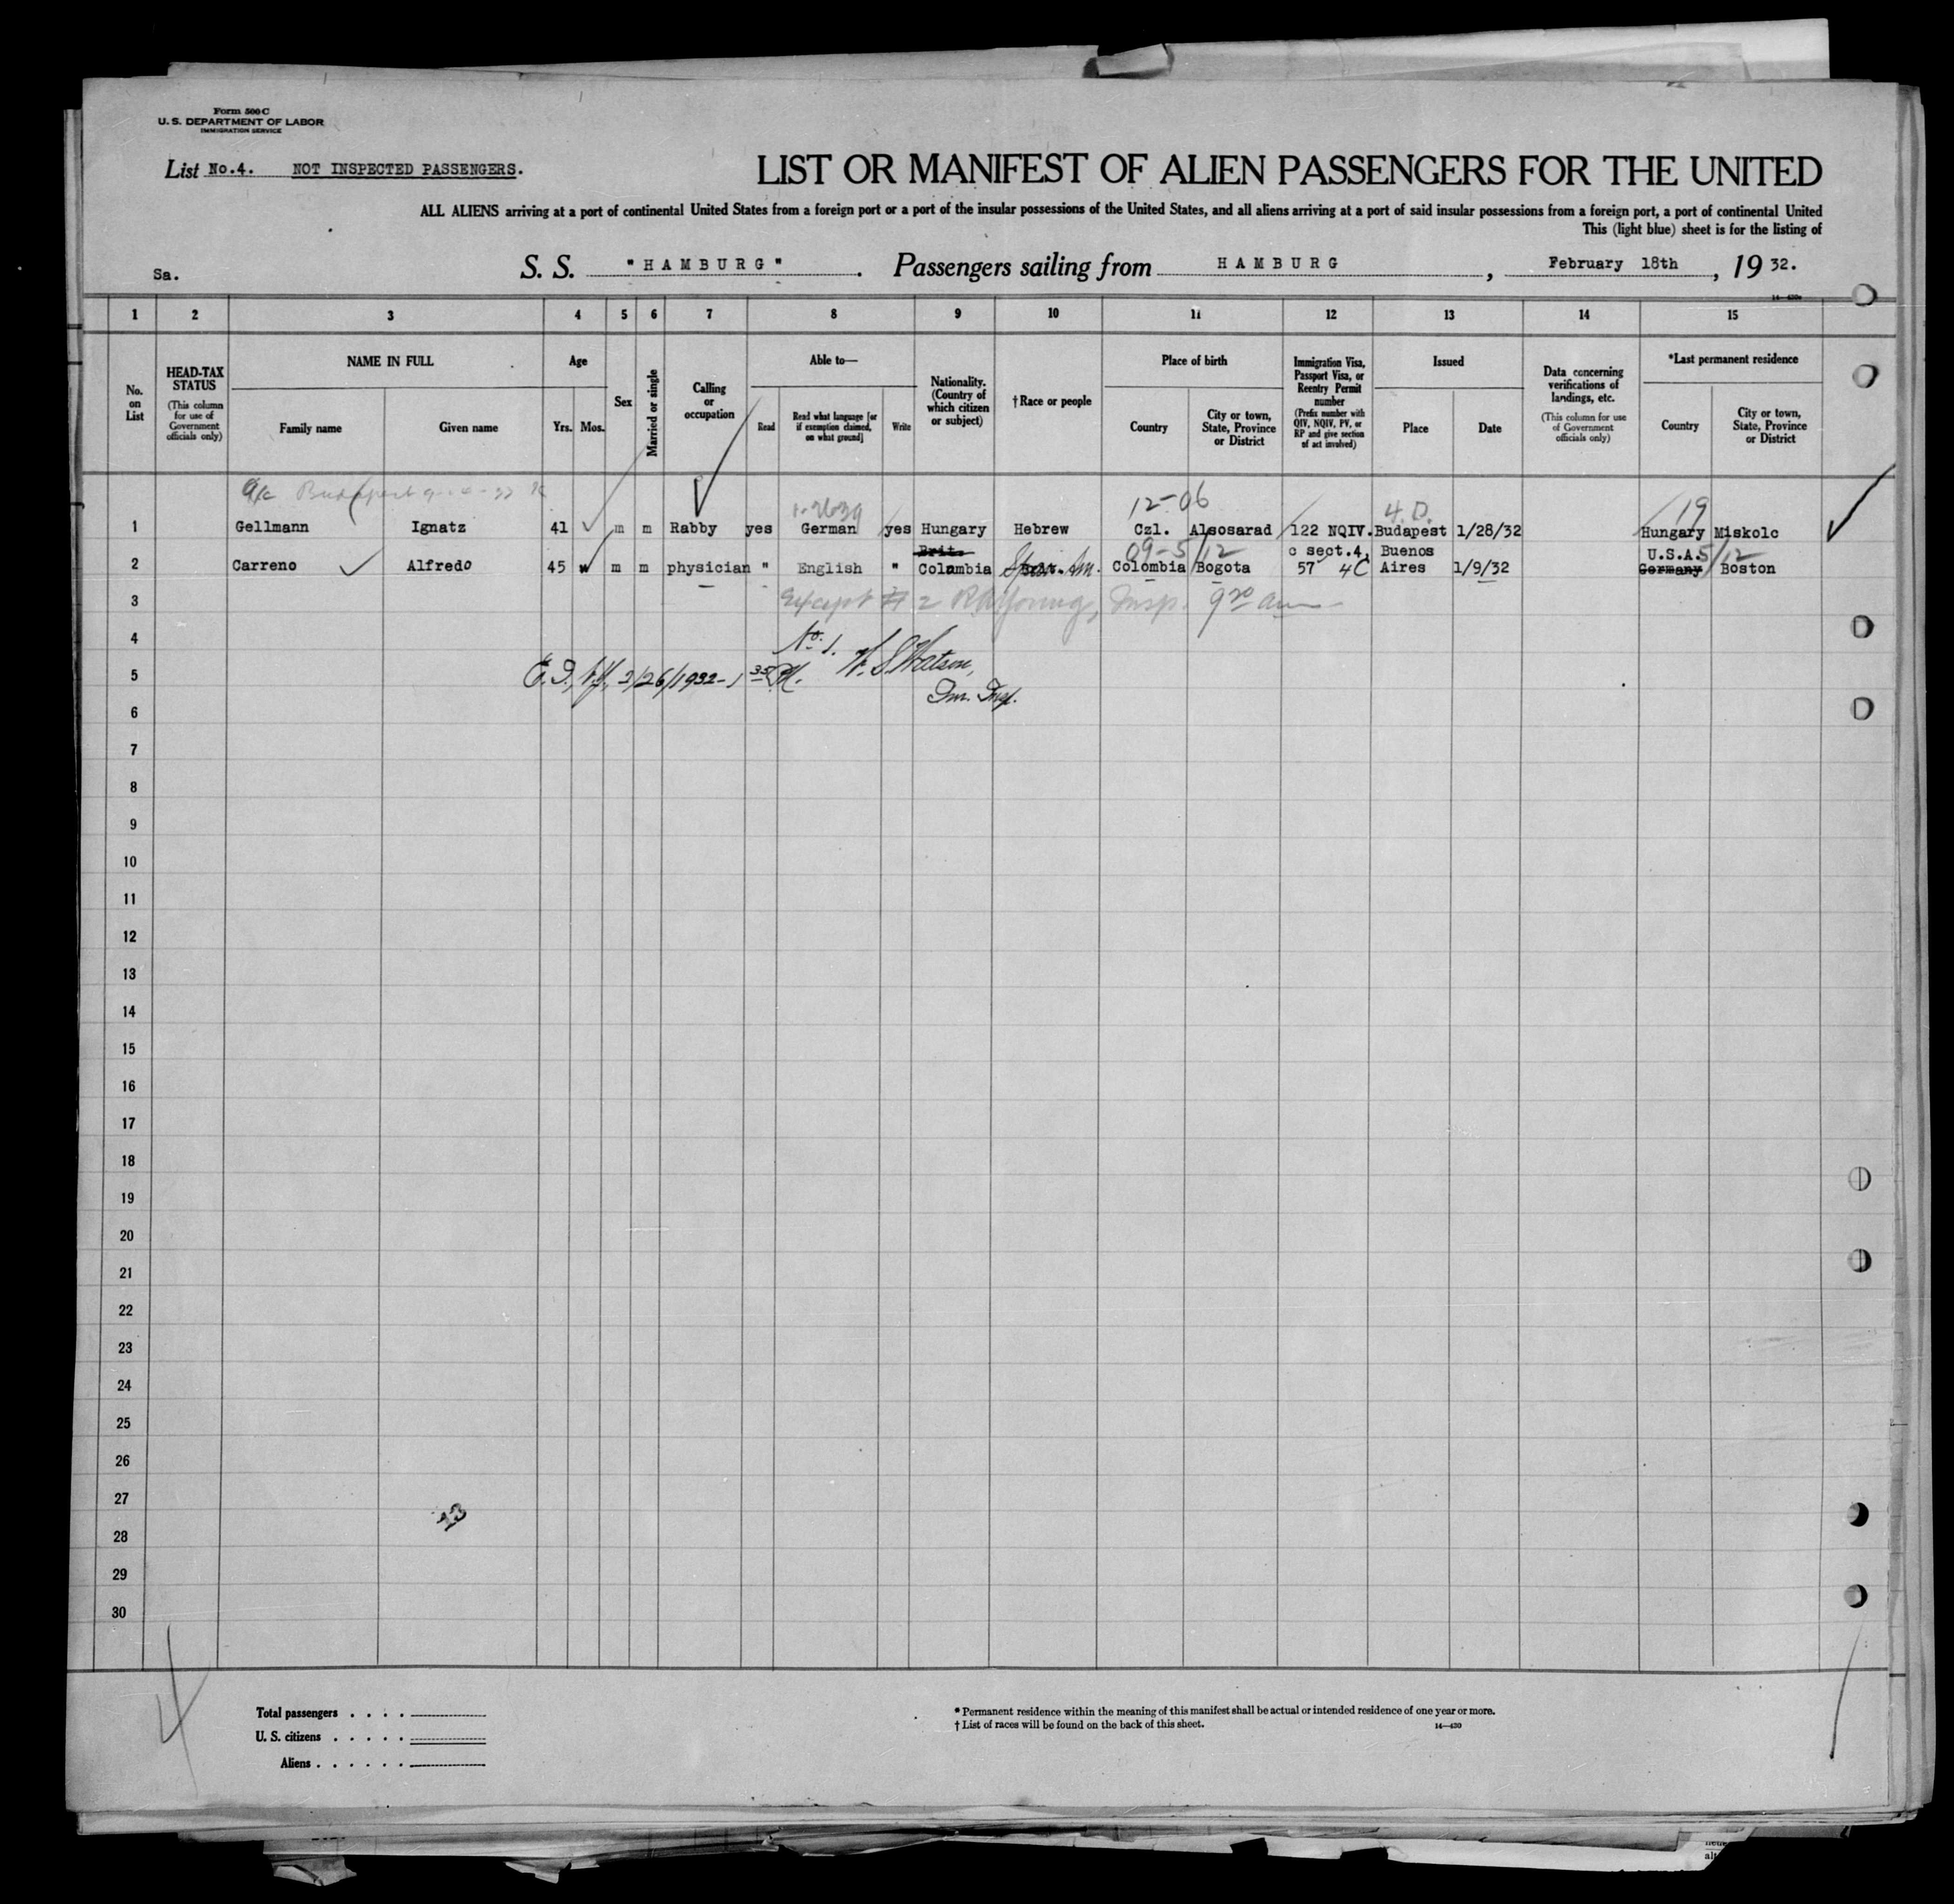 Form 500 C
U. S. DEPARTMENT OF LABOR
IMMIGRATION SERVICE
List No.4. NOT INSPECTED PASSENGERS.
LIST OR MANIFEST OF ALIEN PASSENGERS FOR THE UNITED
ALL ALIENS arriving at a port of continental United States from a foreign port or a port of the insular possessions of the United States, and all aliens arriving at a port of said insular possessions from a foreign port, a port of continental United
This (light blue) sheet is for the listing of
Sa. S. S. "HAMBURG". Passengers sailing from HAMBURG, February 18th, 1932.
1 2 3 4 5 6 7 8 9 10 11 12 13 14 15
No. on List
HEAD-TAX STATUS (This column for use of Government officials only)
NAME IN FULL Family name Given name
Age Yrs. Mos.
Sex
Married or single
Calling or occupation
Able to— Read Read what language [or if exemption claimed, on what ground] Write
Nationality. (Country of which citizen or subject)
†Race or people
Place of birth Country City or town, State, Province or District
Immigration Visa, Passport Visa, or Reentry Permit number (Prefix number with QIV, NQIV, PV, or RP and give section of act involved)
Issued Place Date
Data concerning verifications of landings, etc. (This column for use of Government officials only)
*Last permanent residence Country City or town, State, Province or District
Budapest
12-06 4.D. 19
1 Gellmann Ignatz 41 m m Rabby yes German yes Hungary Hebrew Czl. Alsosarad 122 NQIV. Budapest 1/28/32 Hungary Miskolc
Brit. 09-5/12 c sect.4, Buenos U.S.A. 5/12
2 Carreno Alfredo 45 m m physician " English " Colombia Span. Am. Colombia Bogota 57 4C Aires 1/9/32 Germany Boston
3 Except # 2 Insp. 9 30 am
4 No. 1. W. S. Watson,
5 E. I., N.Y. 2/26/1932-1 35 P.M.
Im. Insp.
6
7
8
9
10
11
12
13
14
15
16
17
18
19
20
21
22
23
24
25
26
27
13
28
29
30
4
Total passengers . . . .
U. S. citizens . . . . .
Aliens . . . . . .
* Permanent residence within the meaning of this manifest shall be actual or intended residence of one year or more.
† List of races will be found on the back of this sheet. 14—430